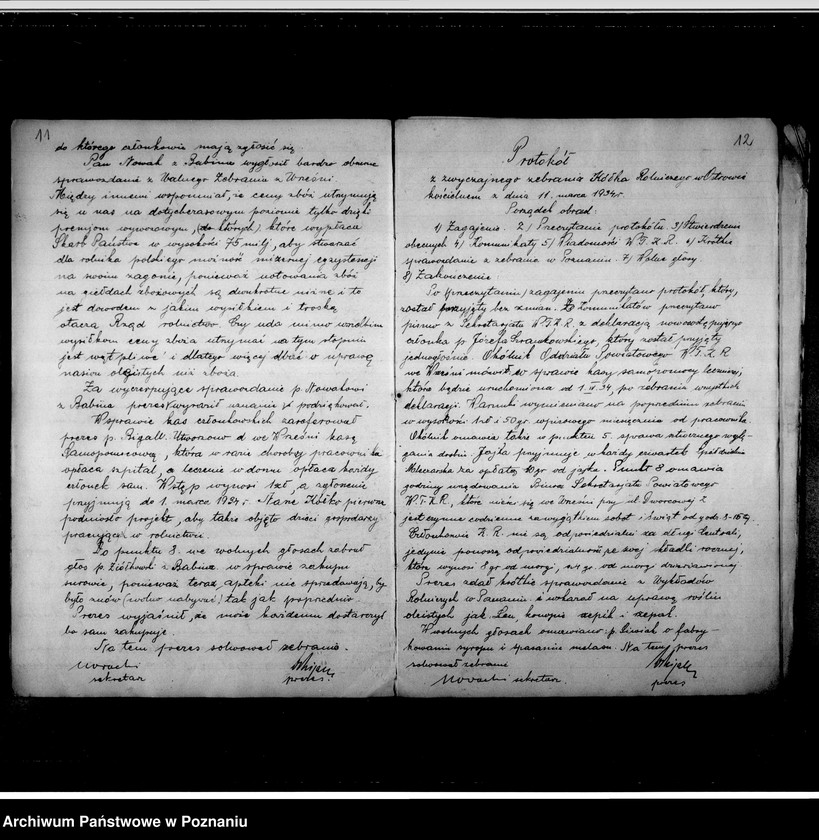 11
do którego członkowie mają zgłosić się.
Pan Nowak z Babina wygłosił bardzo obszerne
sprawozdanie z Walnego Zebrania z Wrześni.
Między innemi wspomniał, że ceny zbóż utrzymują
się u nas na dotychczasowym poziomie tylko dzięki
premjom wywozowym, (do których) które wypłaca
Skarb Państwa w wysokości 75 milj, aby stwarzać
dla rolnika polskiego możność mizernej egzystencji
na swoim zagonie, ponieważ notowania zbóż
na giełdach zbożowych są dwukrotnie niższe i to
jest dowodem z jakim wysiłkiem i troską
otacza Rząd rolnictwo. Czy uda mimo wszelkim
wysiłkom ceny zboża utrzymać na tym stopniu
jest wątpliwe i dlatego więcej dbać o uprawę
nasion oleistych niż zboża.
Za wyczerpujące sprawozdanie p. Nowakowi
z Babina prezes wyraził uznanie i podziękował.
W sprawie kas członkowskich zareferował
prezes p. Bigalt. Utworzono d we Wrześni kasę
Samopomocową, która w razie choroby pracownika
opłaca szpital, a leczenie w domu opłaca każdy
członek sam. Wstęp wynosi 1zł, a zgłoszenie
przyjmują do 1. marca 1934r. Nasze Kółko pierwsze
podniosło projekt, aby także objęto dzieci gospodarzy
pracujące w rolnictwie.
Do punktu 8. we wolnych głosach zabrał
głos p. Ziółkowski z Babina w sprawie zakupu
surowic, ponieważ teraz apteki nie sprzedawają, by
było znów (wolno nabywać) tak jak poprzednio.
Prezes wyjaśnił, że może każdemu dostarczyć
bo sam zakupuje.
Na tem prezes solwował zebranie.
Nowacki
sekretarz prezes.
12
Protokół
z zwyczajnego zebrania Kółka Rolniczego w Ostrowie
kościelnem z dnia 11. marca 1934r.
Porządek obrad:
1) Zagajenie. 2) Przeczytanie protokółu 3) Stwierdzenie
obecnych 4) Komunikaty 5) Wiadomości W.T.K.R. 6) Krótkie
sprawozdanie z zebrania w Poznaniu. 7) Wolne głosy.
8) Zakończenie.
Po (przeczytaniu) zagajeniu przeczytano protokół, który,
został przyjęty bez zmian. Z komunikatów przeczytano
pismo z Sekretarjatu W.T.K.R. z deklaracją nowowstępującego
członka p. Józefa, który został przyjęty
jednogłośnie. Okólnik Oddziału Powiatowego W.T.K.R
we Wrześni mówił w sprawie kasy samopomocy leczniczej,
która będzie uruchomiona od 1.34, po zebraniu wszystkich
deklaracji. Warunki wymieniano na poprzednim zebraniu
w wysokości 1zł i 50gr. wpisowego miesięcznie od pracownika.
Okólnik omawia także w punkcie 5. sprawa sztucznego wylę-
gania drobiu. Jajka przyjmuje w każdy czwartek Spółdzielnia
Mleczarska za opłatą 20gr od jajka. Punkt 8 omawia
godziny urzędowania Biura Sekretarjatu Powiatowego
W.T.K.R., które mieści się we Wrześni przy ul. Dworcowej 2
jest czynne codziennie za wyjątkiem sobót i świąt od godz. 8-15tej.
Członkowie K.R. nie są odpowiedzialni za długi Centrali,
jedynie ponoszą odpowiedzialność ze swej składki rocznej,
która wynosi 8gr od morgi, gr. od morgi dzierżawionej.
Prezes zdał krótkie sprawozdanie z Wykładów
Rolniczych w Poznaniu i wskazał na uprawę roślin
oleistych jak Len, konopie, rzepik i rzepak.
W wolnych głosach omawiano p. o fabry-
kowaniu syropu i spasaniu melasu. Na tem prezes
solwował zebranie
Nowacki sekretarz. prezes
Archiwum Państwowe w Poznaniu